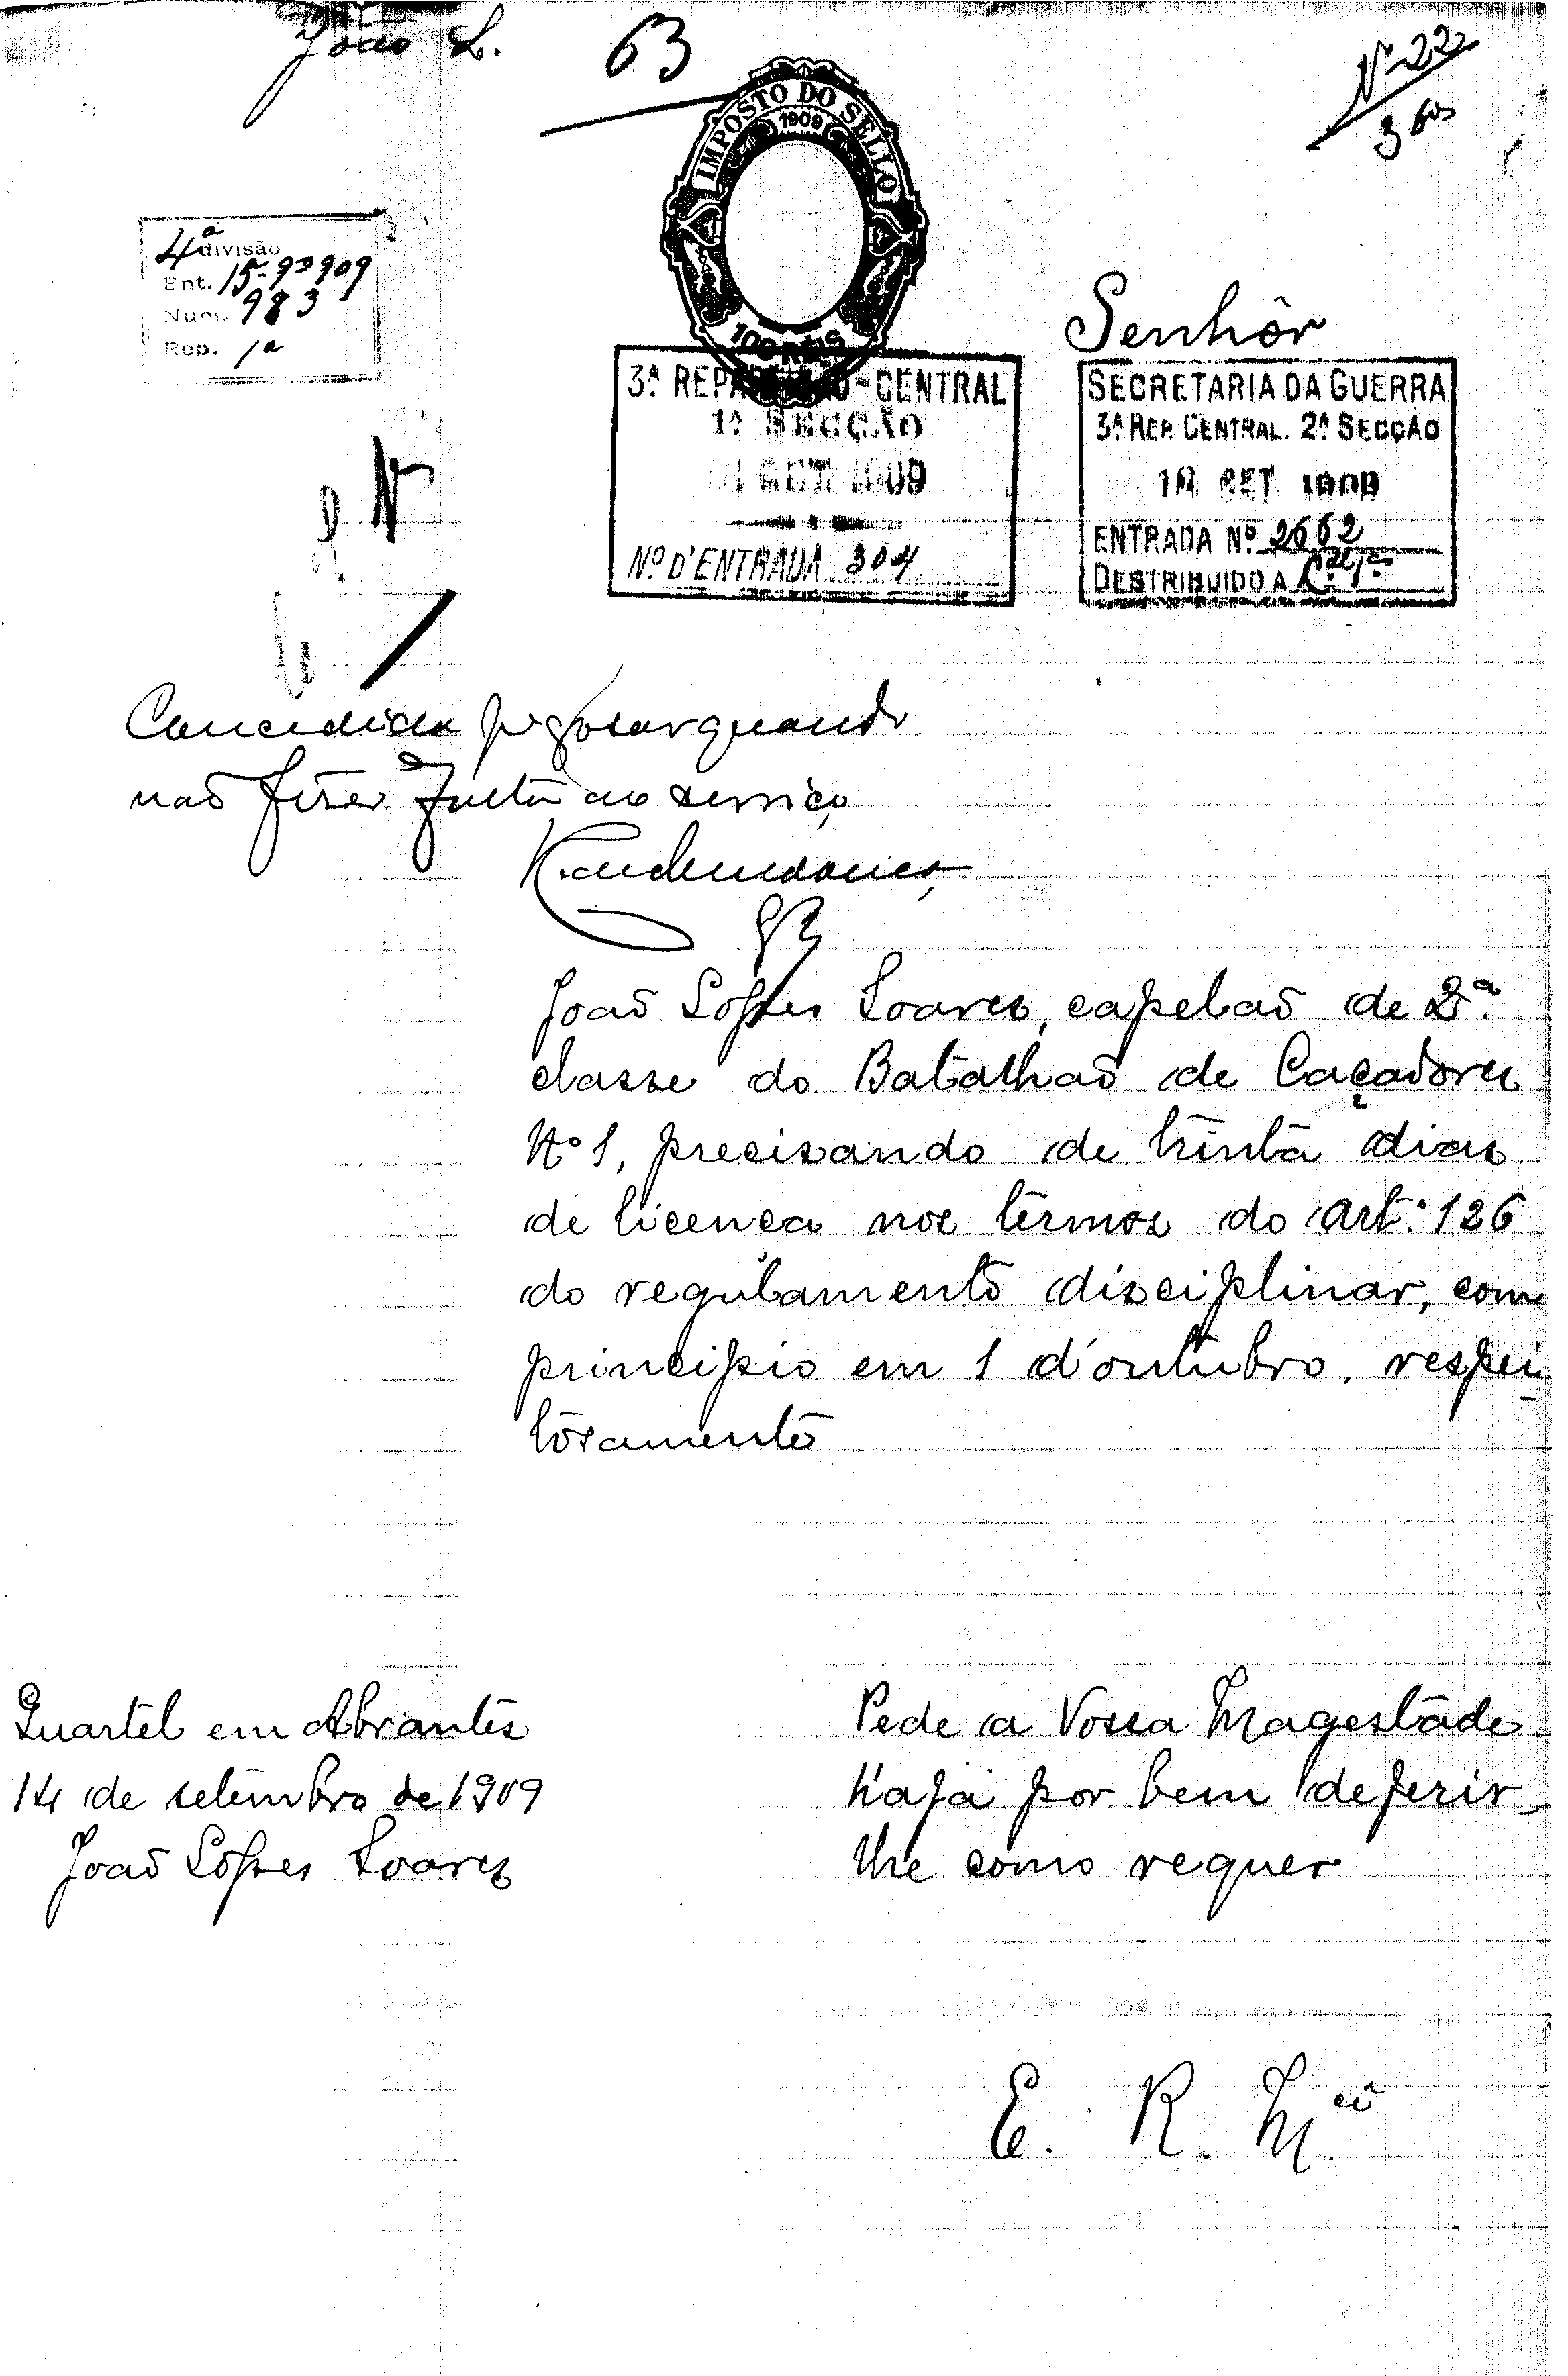 João L. 63
Nº 22
3
IMPOSTO DO SELLO
1909
100 RÉIS
4ª divisão
Ent. 15-9º 909
Num. 983
Rep. 1ª
Senhôr
3ª REPARTIÇÃO-CENTRAL
1ª SECÇÃO
SET 1909
Nº D'ENTRADA 304
SECRETARIA DA GUERRA
3ª REP. CENTRAL. 2ª SECÇÃO
SET. 1909
ENTRADA Nº 2662
DESTRIBUIDO A
Concedida pª gosar quando
não fizer falta ao serviço
João Lopes Soares, capelão de 2ª
classe do Batalhão de Caçadores
Nº 1, precisando de trinta dias
de licença nos termos do art.º 126
do regulamento disciplinar, com
principio em 1 d'outubro, respei
tosamente
Quartel em Abrantes
14 de setembro de 1909
João Lopes Soares
Pede a Vossa Magestade
haja por bem deferir-
lhe como requer
E. R. M.cê